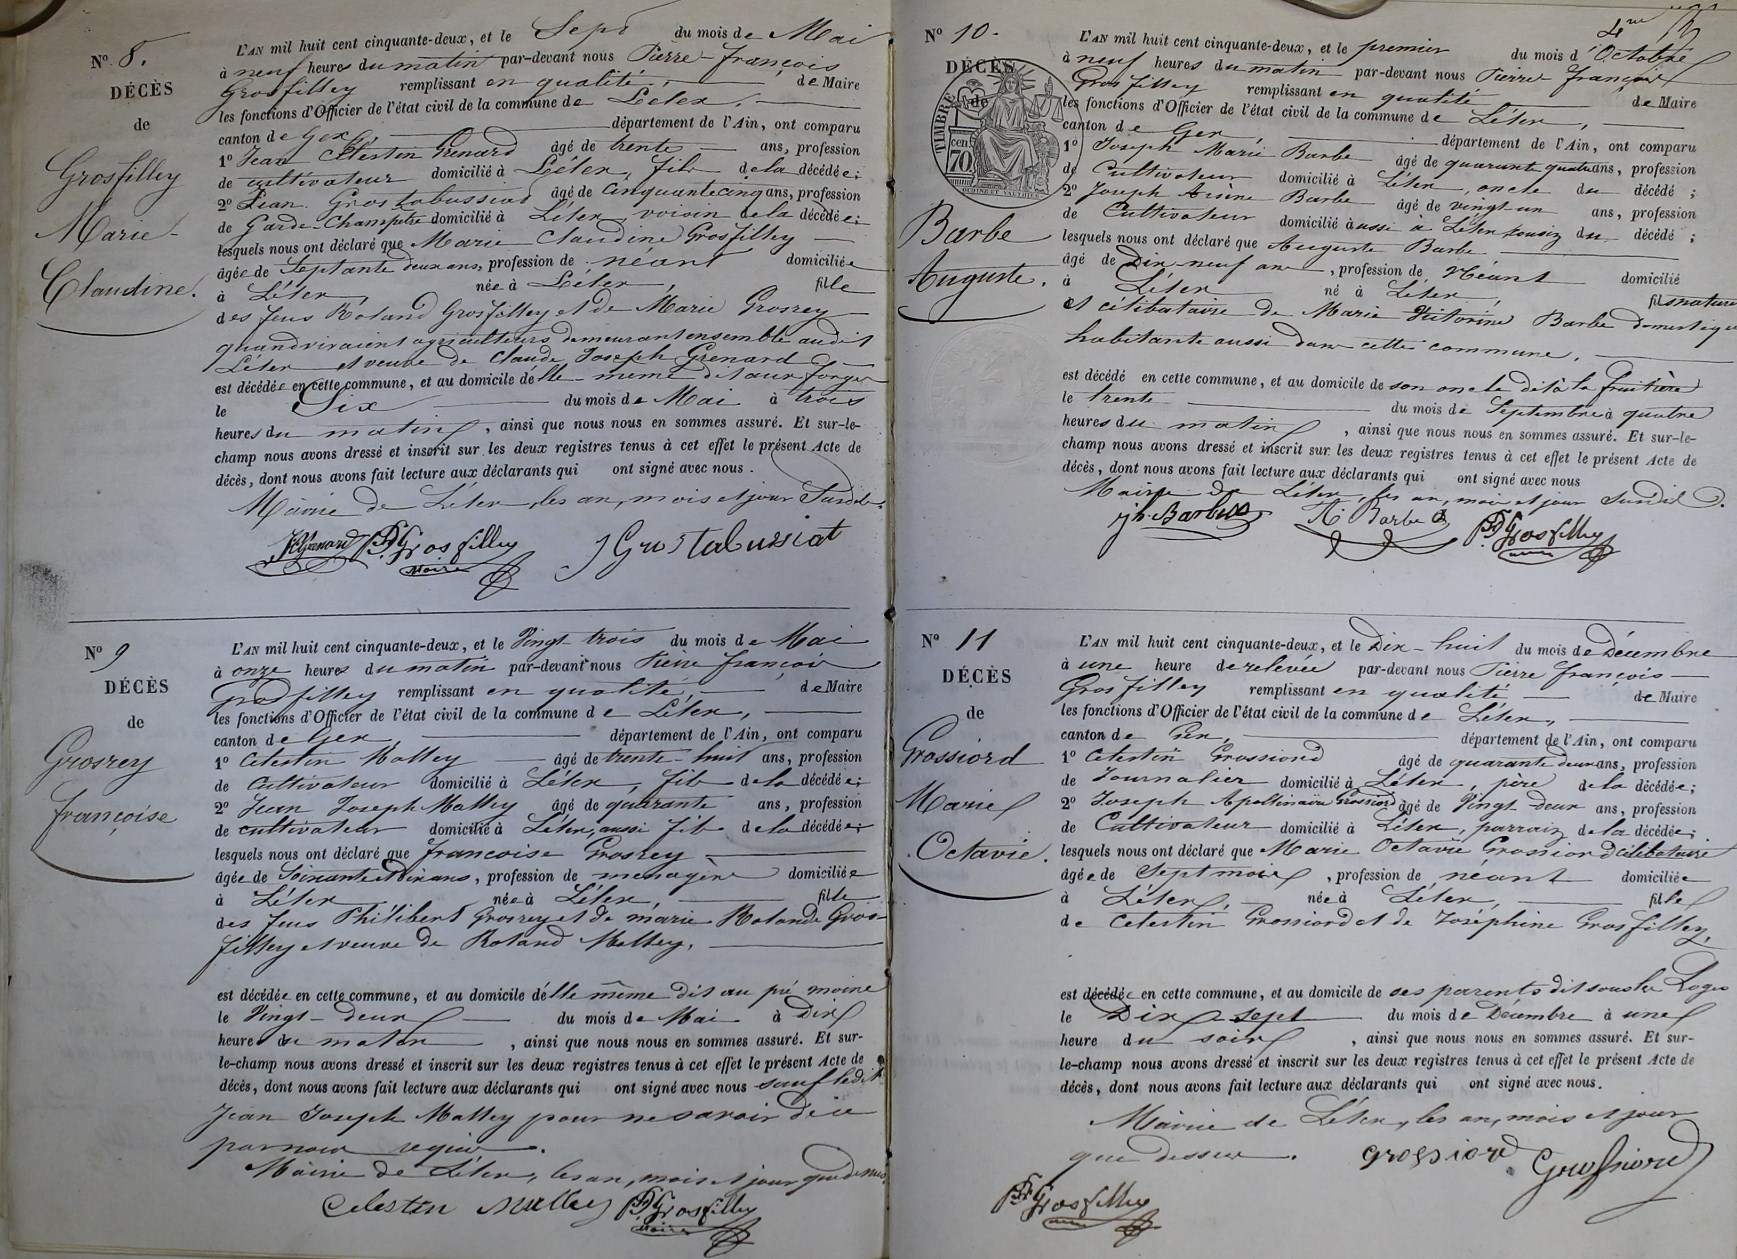 N° 8.
DÉCÈS
de
Grosfilley
Marie
Claudine.
L'AN mil huit cent cinquante-deux, et le Sept du mois de Mai
à neuf heures du matin par-devant nous Pierre François
Grosfilley remplissant en qualité de Maire
les fonctions d'Officier de l'état civil de la commune de Lélex,
canton de Gex, département de l'Ain, ont comparu
1° Jean Célestin Grenard âgé de trente ans, profession
de cultivateur domicilié à Lélex, fils de la décédée;
2° Jean Grostabussiat âgé de Cinquante cinq ans, profession
de Garde-Champêtre domicilié à Lélex, voisin de la décédée;
lesquels nous ont déclaré que Marie Claudine Grosfilley
âgée de Septante deux ans, profession de néant domiciliée
à Lélex, née à Lélex, fille
des feus Roland Grosfilley et de Marie Grosrey
quand vivaient agriculteurs demeurant ensemble audit
Lélex et veuve de Claude Joseph Grenard
est décédée en cette commune, et au domicile d'elle même dit aux forges
le Six du mois de Mai à trois
heures du matin, ainsi que nous nous en sommes assuré. Et sur-le-
champ nous avons dressé et inscrit sur les deux registres tenus à cet effet le présent Acte de
décès, dont nous avons fait lecture aux déclarants qui ont signé avec nous.
Mairie de Lélex, les an, mois et jour Susdits.
JC Grenard PF Grosfilley J Grostabussiat
Maire
N° 9
DÉCÈS
de
Grosrey
françoise
L'AN mil huit cent cinquante-deux, et le Vingt trois du mois de Mai
à onze heures du matin par-devant nous Pierre françois
Grosfilley remplissant en qualité, de Maire
les fonctions d'Officier de l'état civil de la commune de Lélex,
canton de Gex, département de l'Ain, ont comparu
1° Célestin Mathey âgé de trente-huit ans, profession
de Cultivateur domicilié à Lélex, fils de la décédée;
2° Jean Joseph Mathey âgé de quarante ans, profession
de cultivateur domicilié à Lélex, aussi fils de la décédée;
lesquels nous ont déclaré que françoise Grosrey
âgée de Soixante et Dix ans, profession de menagère domiciliée
à Lélex née à Lélex, fille
des feus Philibert Grosrey et de marie Rolande Gros-
filley et veuve de Roland Mathey,
est décédée en cette commune, et au domicile d'elle même dit au pré moine
le Vingt-deux du mois de Mai à Dix
heures du matin, ainsi que nous nous en sommes assuré. Et sur-
le-champ nous avons dressé et inscrit sur les deux registres tenus à cet effet le présent Acte de
décès, dont nous avons fait lecture aux déclarants qui ont signé avec nous sauf ledit
Jean Joseph Mathey pour ne savoir de ce
par nous requis.
Mairie de Lélex, les an, mois et jour que dessus
Celesten Mathey PF Grosfilley
Maire
N° 10.
DÉCÈS
de
TIMBRE
cen 70
Barbe
Auguste.
L'AN mil huit cent cinquante-deux, et le premier du mois d'Octobre
à neuf heures du matin par-devant nous Pierre françois
Grosfilley remplissant en qualité de Maire
les fonctions d'Officier de l'état civil de la commune de Lélex,
canton de Gex, département de l'Ain, ont comparu
1° Joseph Marie Barbe âgé de quarante quatre ans, profession
de Cultivateur domicilié à Lélex, oncle du décédé;
2° Joseph Arsène Barbe âgé de vingt-un ans, profession
de Cultivateur domicilié aussi à Lélex cousin du décédé;
lesquels nous ont déclaré que Auguste Barbe
âgé de Dix neuf ans, profession de Néant domicilié
à Lélex né à Lélex, fils naturel
et célibataire de Marie Victorine Barbe domestique
habitante aussi dans cette commune,
est décédé en cette commune, et au domicile de son oncle dit à la fruitière
le trente du mois de Septembre à quatre
heures du matin, ainsi que nous nous en sommes assuré. Et sur-le-
champ nous avons dressé et inscrit sur les deux registres tenus à cet effet le présent Acte de
décès, dont nous avons fait lecture aux déclarants qui ont signé avec nous
Mairie de Lélex, les an, mois et jour Susdits.
Barbe A. Barbe PF Grosfilley
N° 11
DÉCÈS
de
Grossiord
Marie
Octavie.
L'AN mil huit cent cinquante-deux, et le Dix-huit du mois de Décembre
à une heure de relevée par-devant nous Pierre françois
Grosfilley remplissant en qualité de Maire
les fonctions d'Officier de l'état civil de la commune de Lélex,
canton de Gex, département de l'Ain, ont comparu
1° Célestin Grossiord âgé de quarante deux ans, profession
de Journalier domicilié à Lélex, père de la décédée;
2° Joseph Apollinaire Grossiord âgé de Vingt deux ans, profession
de Cultivateur domicilié à Lélex, parrain de la décédée;
lesquels nous ont déclaré que Marie Octavie Grossiord célibataire
âgée de Sept mois, profession de néant domiciliée
à Lélex, née à Lélex, fille
de Célestin Grossiord et de Joséphine Grosfilley,
est décédée en cette commune, et au domicile de ses parents dit sous les Loges
le Dix-sept du mois de Décembre à une
heure du soir, ainsi que nous nous en sommes assuré. Et sur-
le-champ nous avons dressé et inscrit sur les deux registres tenus à cet effet le présent Acte de
décès, dont nous avons fait lecture aux déclarants qui ont signé avec nous.
Mairie de Lélex, les an, mois et jour
que dessus. Grossiord Grossiord
PF Grosfilley